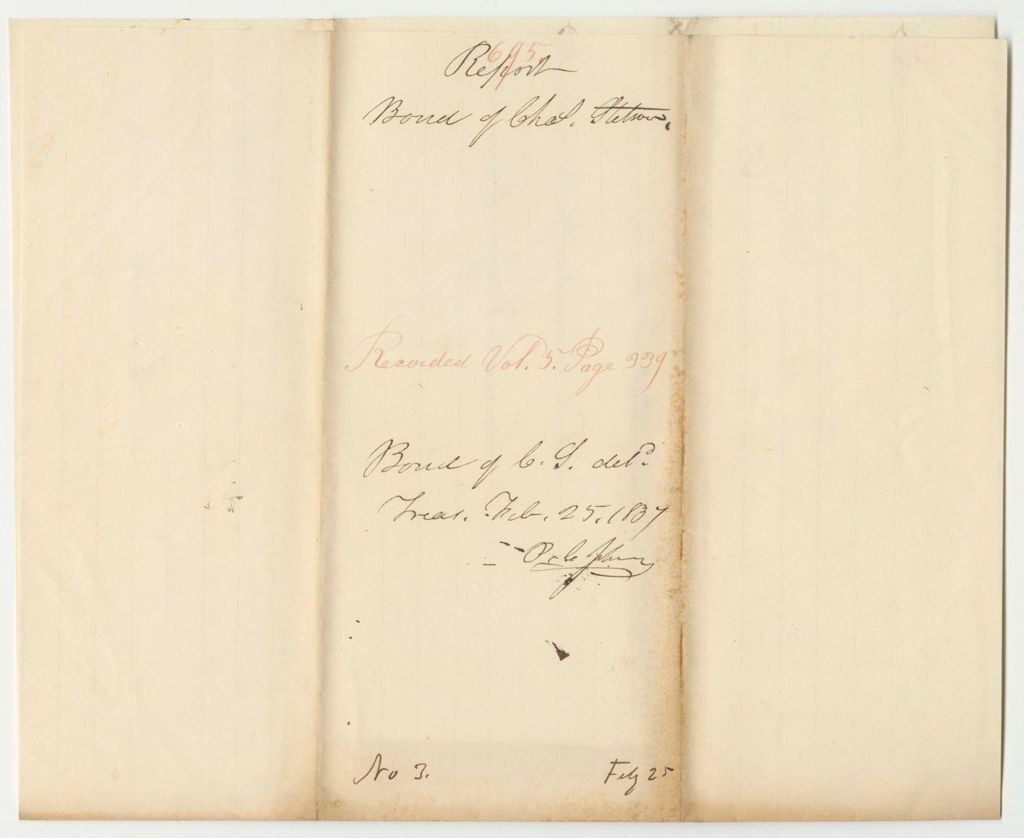 695
Report
Bond of Chas. Stetson,
Recorded Vol. 5. Page 339
Bond of C. S. deld.
Treas. Feb. 25. 1837
No 3.
Feb 25